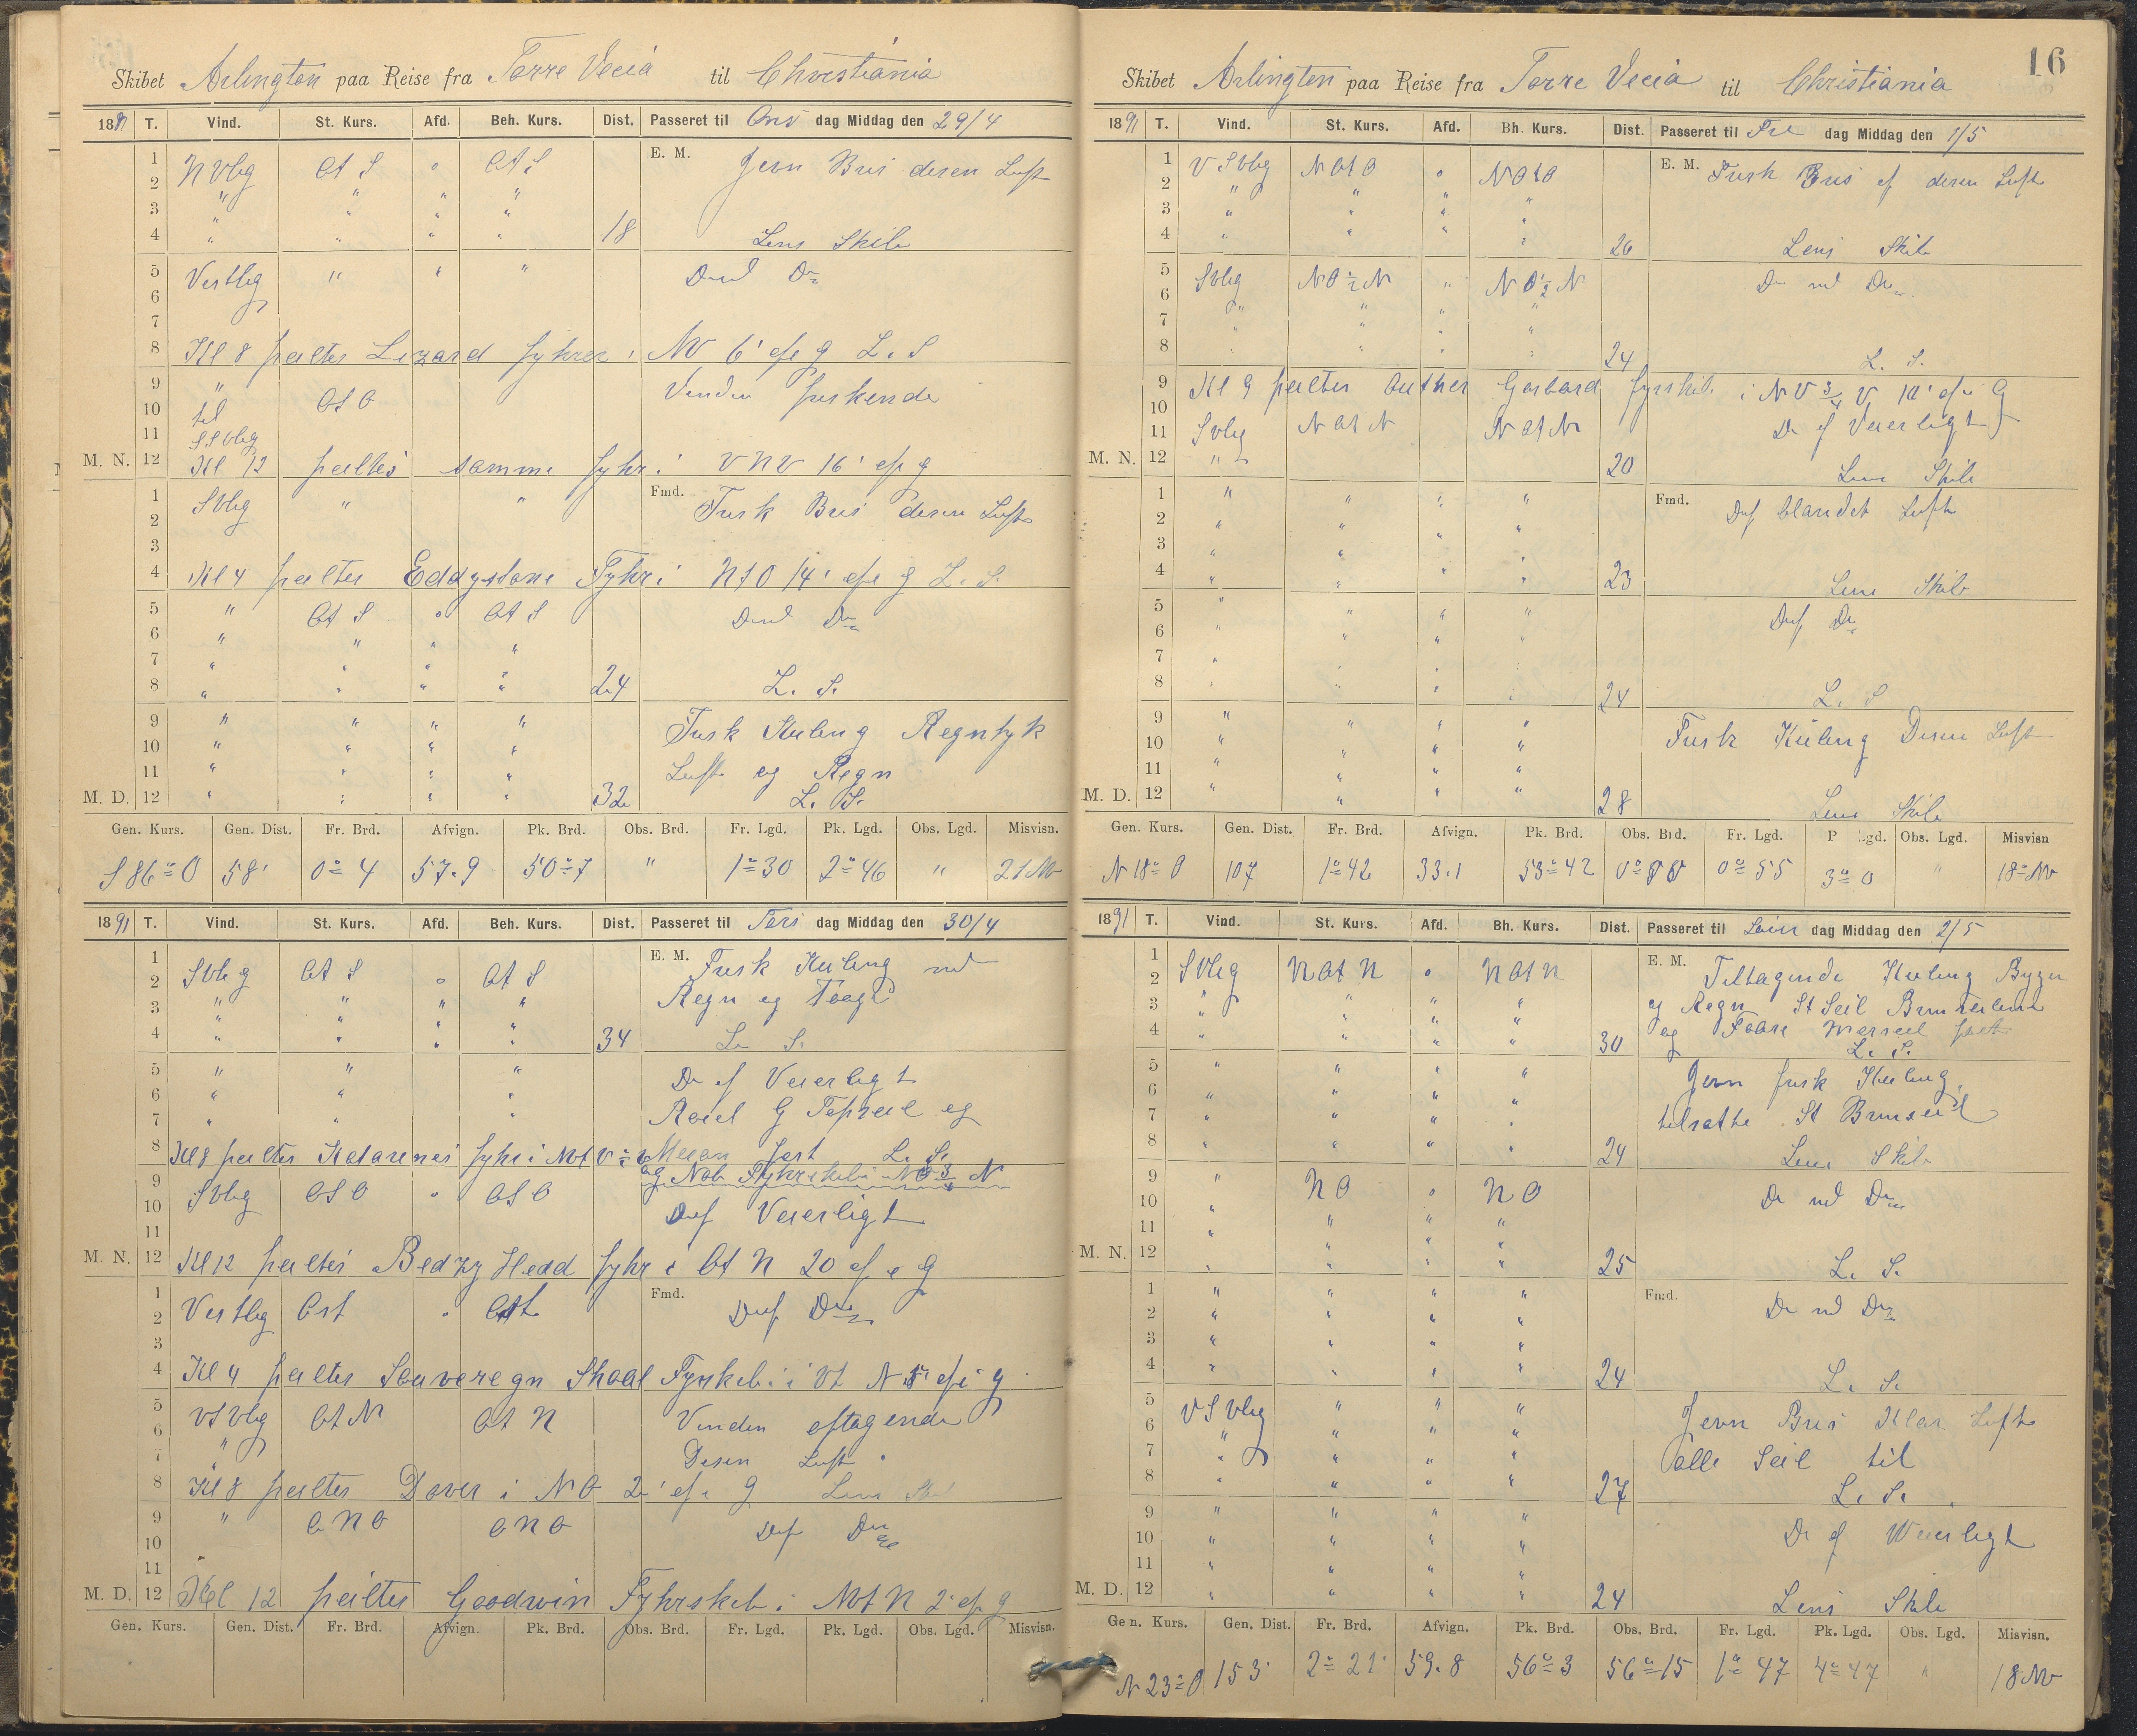 Skibet Arlington paa Reise fra Torre Vecia til Christiania
1891 T. Vind. St. Kurs. Afd. Beh. Kurs. Dist. Passeret til Ons dag Middag den 29/4
1 N Vlig Ot S " Ot S E. M. Jevn Bris desen Luft
2 " " " "
3 " " " "
4 " " " " 18 Lens Skib
5 Vestlig " " " D
6
7
8 Kl 8 peiltes Lizard fyhr i NV 6' af g L. S
9 " Ot O Vinden friskende
10 til
11 SSVlig
M. N. 12 Kl 12 peiltes samme fyhr i V N V 16' af g
1 SVlig " " Fmd. Frisk Bris desen Luft
2
3
4 Kl 4 peiltes Eddystone Fyhr i NtO 14' af g L. S.
5 " Ot S " Ot S
6 " " " "
7 " " " "
8 " " " " 24 L. S.
9 " " " " Frisk Kuling Regntyk
10 " " " "
11 " " " " Luft og Regn
M. D. 12 " " " " 32 L. S.
Gen. Kurs. Gen. Dist. Fr. Brd. Afvign. Pk. Brd. Obs. Brd. Fr. Lgd. Pk. Lgd. Obs. Lgd. Misvisn.
S 86° O 58' 0° 4 57.9 50° 7 " 1° 30 2° 46 " 21 NV
1891 T. Vind. St. Kurs. Afd. Beh. Kurs. Dist. Passeret til Tors dag Middag den 30/4
1 E. M. Frisk Kuling md
2 SVlig Ot S " Ot S
3 " " " " Regn og Taage
4 " " " " 34 L. S.
5 " " " D af Veierligt
6 " "
7 " " " Reiel G Topseil og
8 Kl 8 peiltes fyhr i Mesan fast L. S.
og Nab Fyhrskib i NO 3/4 N
9 SVlig OSO " OSO
10 D af Veierligt
11
M. N. 12 Kl 12 peiltes Head fyhr i Ot N 20 af g
1 Vestlig Ost " Ost Fmd.
2
3
4 Kl 4 peiltes Souveregn Shoal Fyrskib i Vt N af g
5 VSVlig OtN Ot N Vinden aftagende
6 "
7 Desen Luft
8 Kl 8 peiltes Dover i NO 2' af g Lens
9 " ONO ONO
10
11
M. D. 12 Kl 12 peiltes Goodwin Fyhrskib i N 2' af g
Gen. Kurs. Gen. Dist. Fr. Brd. Afvign. Pk. Brd. Obs. Brd. Fr. Lgd. Pk. Lgd. Obs. Lgd. Misvisn.
16
Skibet Arlington paa Reise fra Torre Vecia til Christiania
1891 T. Vind. St. Kurs. Afd. Bh. Kurs. Dist. Passeret til Fre dag Middag den 1/5
1 V SVlig NOtO " NOtO E. M. Frisk Bris af desen Luft
2 " " " "
3 " " " "
4 " " " " 26 Lens Skib
5 SVlig NO½N " NO½N D md D
6 " " " "
7 " " " "
8 " " " " 24 L. S.
9 Kl 9 peiltes Outher Gabbard fyrskib i NV 3/4 V 10' af G
10
11 SVlig N Ot N N Ot N D af Veierligt
M. N. 12 " 20 Lens Skib
1 " " " " Fmd. blandet Luft
2 " " " "
3 " " " "
4 " " " " 23 Lens Skib
5 " " " "
6 " " " "
7 " " "
8 " " " " 24 L. S
9 " " " " Frisk Kuling Desen Luft
10 " " " "
11 " " " "
M. D. 12 " " " " 28 Lens Skib
Gen. Kurs. Gen. Dist. Fr. Brd. Afvign. Pk. Brd. Obs. Brd. Fr. Lgd. P gd. Obs. Lgd. Misvisn
N 18° O 107 1° 42 33.1 53° 42 0° 55 3° 0 " 18° NV
1891 T. Vind. St. Kurs. Afd. Bh. Kurs. Dist. Passeret til dag Middag den 2/5
1 E. M. Tiltagende Kuling Byger
2 SVlig N Ot N " N Ot N
3 " " " " og Regn St Seil Bramseilene
4 " " " " 30 og Foare Merseil fast
L. S.
5 " " " " Jevn frisk Kuling
6 " " " "
7 " " " " tilsatte St Bramseil
8 " " " " 24 Lens Skib
9 " NO " NO D md D
10 "
11 " " " "
M. N. 12 " " " " 25 L. S.
1 " " " " Fmd. D md D
2 " " " "
3 " " " "
4 " " " " 24 L. S.
5 VSVlig " " " Jevn Bris Klar Luft
6 " " " "
7 " " " " alle Seil til
8 " " " " 27 L. S.
9 " " " " D af Weierligt
10 " " " "
11 " " " "
M. D. 12 " " " " 24 Lens Skib
Gen. Kurs. Gen. Dist. Fr. Brd. Afvign. Pk. Brd. Obs. Brd. Fr. Lgd. Pk. Lgd. Obs. Lgd. Misvisn.
N 23° O 153' 2° 21' 59.8 56° 3 56° 15 1° 47 4° 47 " 18 NV